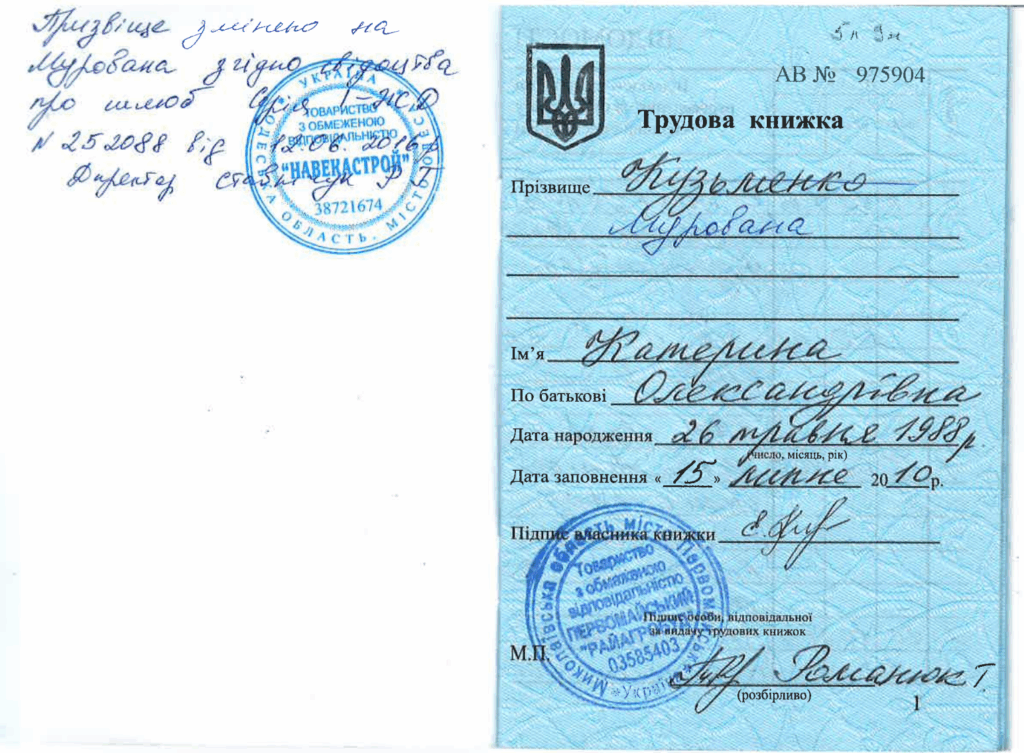 Призвіще змінено на
Мурована згідно свідоцтва
про шлюб Серія І-ЖД
N 252088 від 12.08. 2016р
Директор
УКРАЇНА
ОДЕСЬКА ОБЛАСТЬ, МІСТО ОДЕСА
ТОВАРИСТВО
З ОБМЕЖЕНОЮ
ВІДПОВІДАЛЬНІСТЮ
"НАВЕКАСТРОЙ"
38721674
АВ № 975904
Трудова книжка
Прізвище Кузьменко
Мурована
Ім’я Катерина
По батькові Олександрівна
Дата народження 26 травня 1988р.
(число, місяць, рік)
Дата заповнення « 15 » липне 2010р.
Підпис власника книжки
Миколаївська область місто Первомайськ
Україна
Товариство
з обмеженою
відповідальністю
ПЕРВОМАЙСЬКИЙ
"РАЙАГРОБУД"
03585403
Підпис особи, відповідальної
за видачу трудових книжок
М.П.
Романюк Т.
(розбірливо)
1